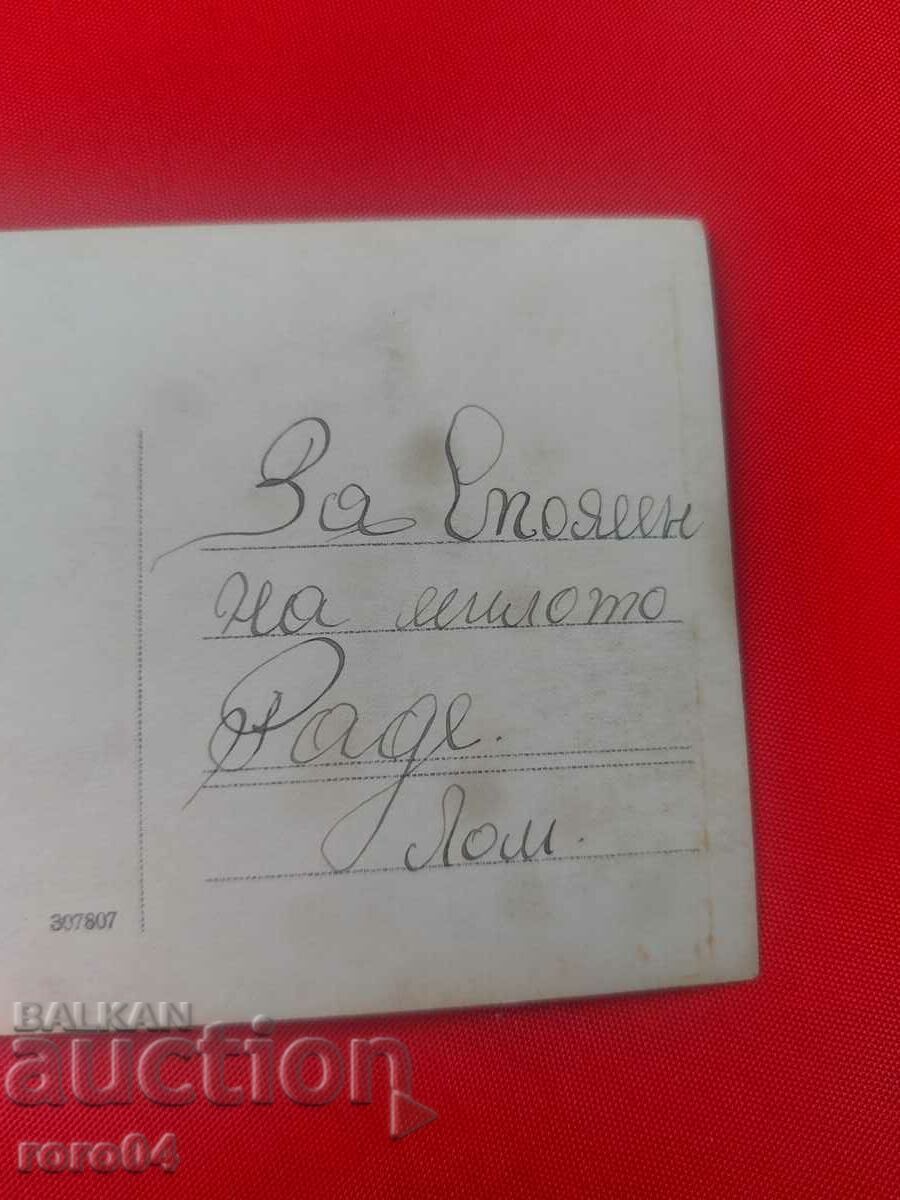 За Споямен
на милото
Раде.
Лом.
307807
BALKAN
auction
roro04